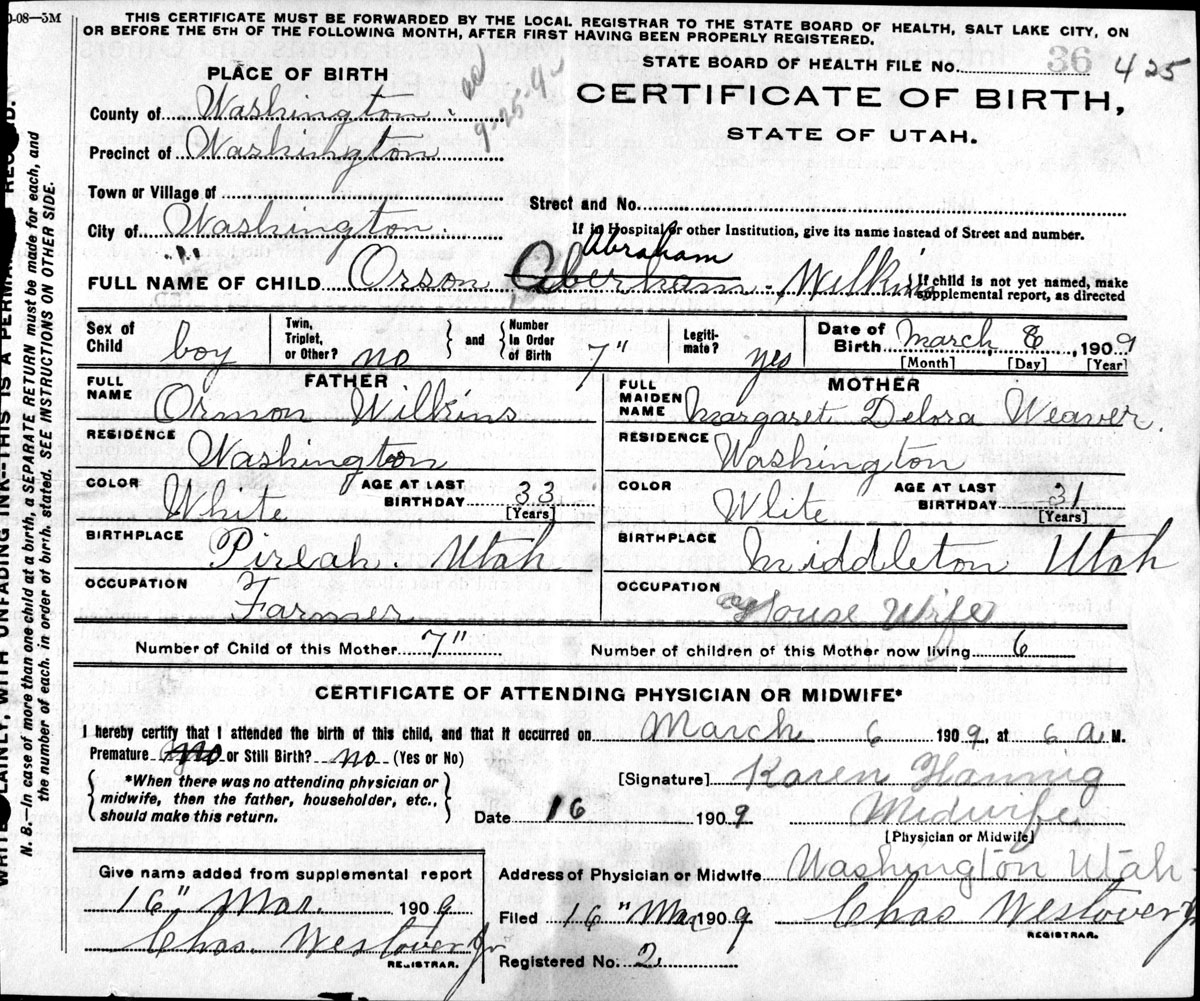 0-08—3M
THIS CERTIFICATE MUST BE FORWARDED BY THE LOCAL REGISTRAR TO THE STATE BOARD OF HEALTH, SALT LAKE CITY, ON
OR BEFORE THE 5TH OF THE FOLLOWING MONTH, AFTER FIRST HAVING BEEN PROPERLY REGISTERED.
STATE BOARD OF HEALTH FILE No. 36 425
CERTIFICATE OF BIRTH,
STATE OF UTAH.
PLACE OF BIRTH
County of Washington
Precinct of Washington
Town or Village of
City of Washington
Street and No.
If in Hospital or other Institution, give its name instead of Street and number.
Abraham
FULL NAME OF CHILD Orson Aberham Wilkins
If child is not yet named, make supplemental report, as directed
Sex of Child boy
Twin, Triplet, or Other? no
and
Number In Order of Birth 7"
Legiti-mate? yes
Date of Birth March 6, 1909
[Month] [Day] [Year]
FATHER
FULL NAME Ormon Wilkins
RESIDENCE Washington
COLOR White
AGE AT LAST BIRTHDAY 33
[Years]
BIRTHPLACE Pireah. Utah
OCCUPATION Farmer
MOTHER
FULL MAIDEN NAME Margaret Delora Weaver.
RESIDENCE Washington
COLOR Wlite
AGE AT LAST BIRTHDAY 31
[Years]
BIRTHPLACE Middleton Utah
OCCUPATION House Wife
Number of Child of this Mother 7"
Number of children of this Mother now living 6
CERTIFICATE OF ATTENDING PHYSICIAN OR MIDWIFE*
I hereby certify that I attended the birth of this child, and that it occurred on March 6 1909, at 6 a M.
Premature no or Still Birth? no (Yes or No)
*When there was no attending physician or
midwife, then the father, householder, etc.,
should make this return.
[Signature] Karen Hannig
Date 16 1909 Midwife
[Physician or Midwife]
Give name added from supplemental report
16" Mar. 1909
Chas. Westover Jr
REGISTRAR.
Address of Physician or Midwife Washington Utah
Filed 16" Mar 1909 Chas Westover Jr
REGISTRAR.
Registered No. 2
N. B.—In case of more than one child at a birth, a SEPARATE RETURN must be made for each, and
the number of each, in order of birth, stated. SEE INSTRUCTIONS ON OTHER SIDE.
PLAINLY, WITH UNFADING INK--THIS IS A